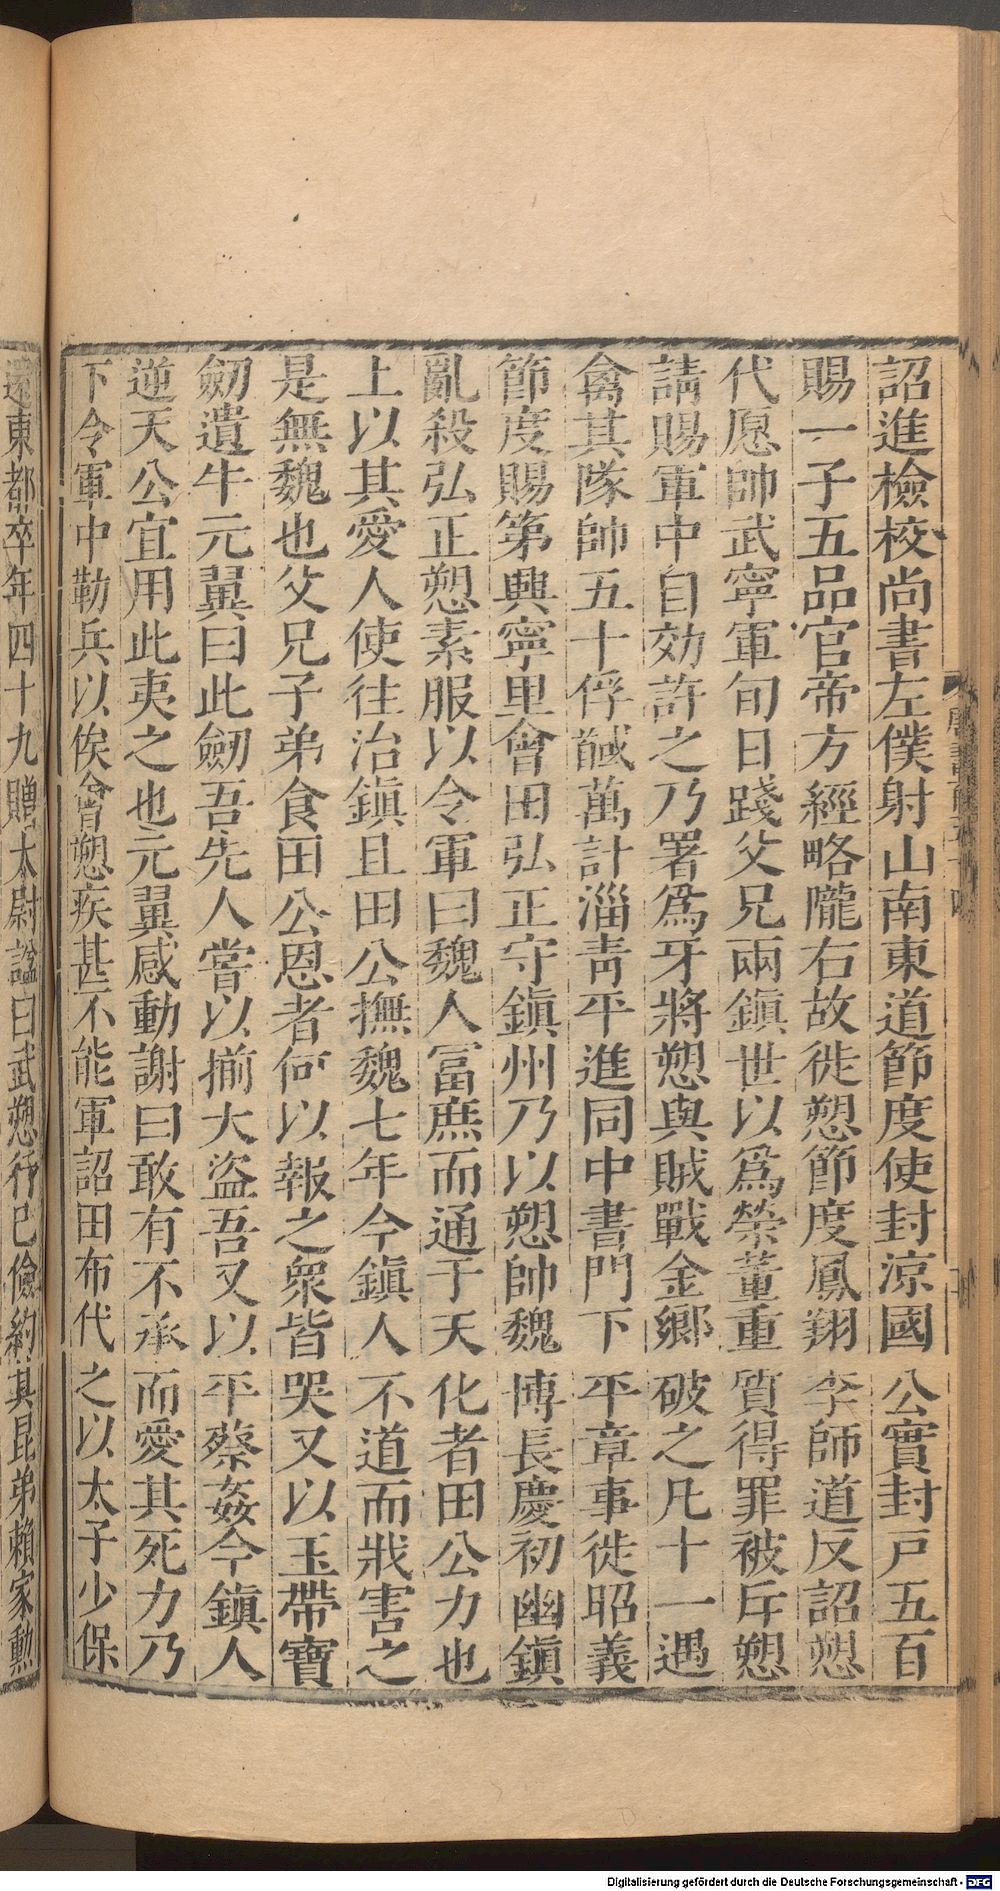 詔進檢校尚書左僕射山南東道節度使封涼國公實封戸五百
賜一子五品官帝方經略隴右故徙愬節度鳳翔李師道反詔愬
代愿帥武寧軍旬日踐父兄兩鎮世以爲榮董重質得罪被斥愬
請賜軍中自効許之乃署爲牙將愬與賊戰金鄉破之凡十一遇
禽其隊帥五十俘馘萬計淄青平進同中書門下平章事徙昭義
節度賜第興寧里會田弘正守鎮州乃以愬帥魏博長慶初幽鎮
亂殺弘正愬素服以令軍曰魏人富庶而通于天化者田公力也
上以其愛人使往治鎮且田公撫魏七年今鎮人不道而戕害之
是無魏也父兄子弟食田公恩者何以報之衆皆哭又以玉帶寶
劒遺牛元翼曰此劒吾先人嘗以揃大盜吾又以平蔡姦今鎮人
逆天公宜用此夷之也元翼感動謝曰敢有不承而愛其死力乃
下令軍中勒兵以俟會愬疾甚不能軍詔田布代之以太子少保
還東都卒年四十九贈太尉謚曰武愬行巳儉約其昆弟賴家勲
Digitalisierung gefördert durch die Deutsche Forschungsgemeinschaft - DFG